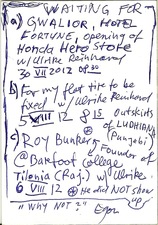 WAITING FOR
a) GWALIOR, HOTEL
FORTUNE, opening of
Honda Hero Store
w/ Ulrike Reinhard
30 VII 2012 08.30
b) For my flat tire to be
fixed w/ Ulrike Reinhard
5 VIII 12 8 15 outskirts
of LUDHIANA
(Punjabi)
c) ROY Bunker, Founder of
@ Barefoot College
Tilonia (Raj.) w/ Ulrike.
6 VIII 12 He did NOT show
up.
"WHY NOT?"